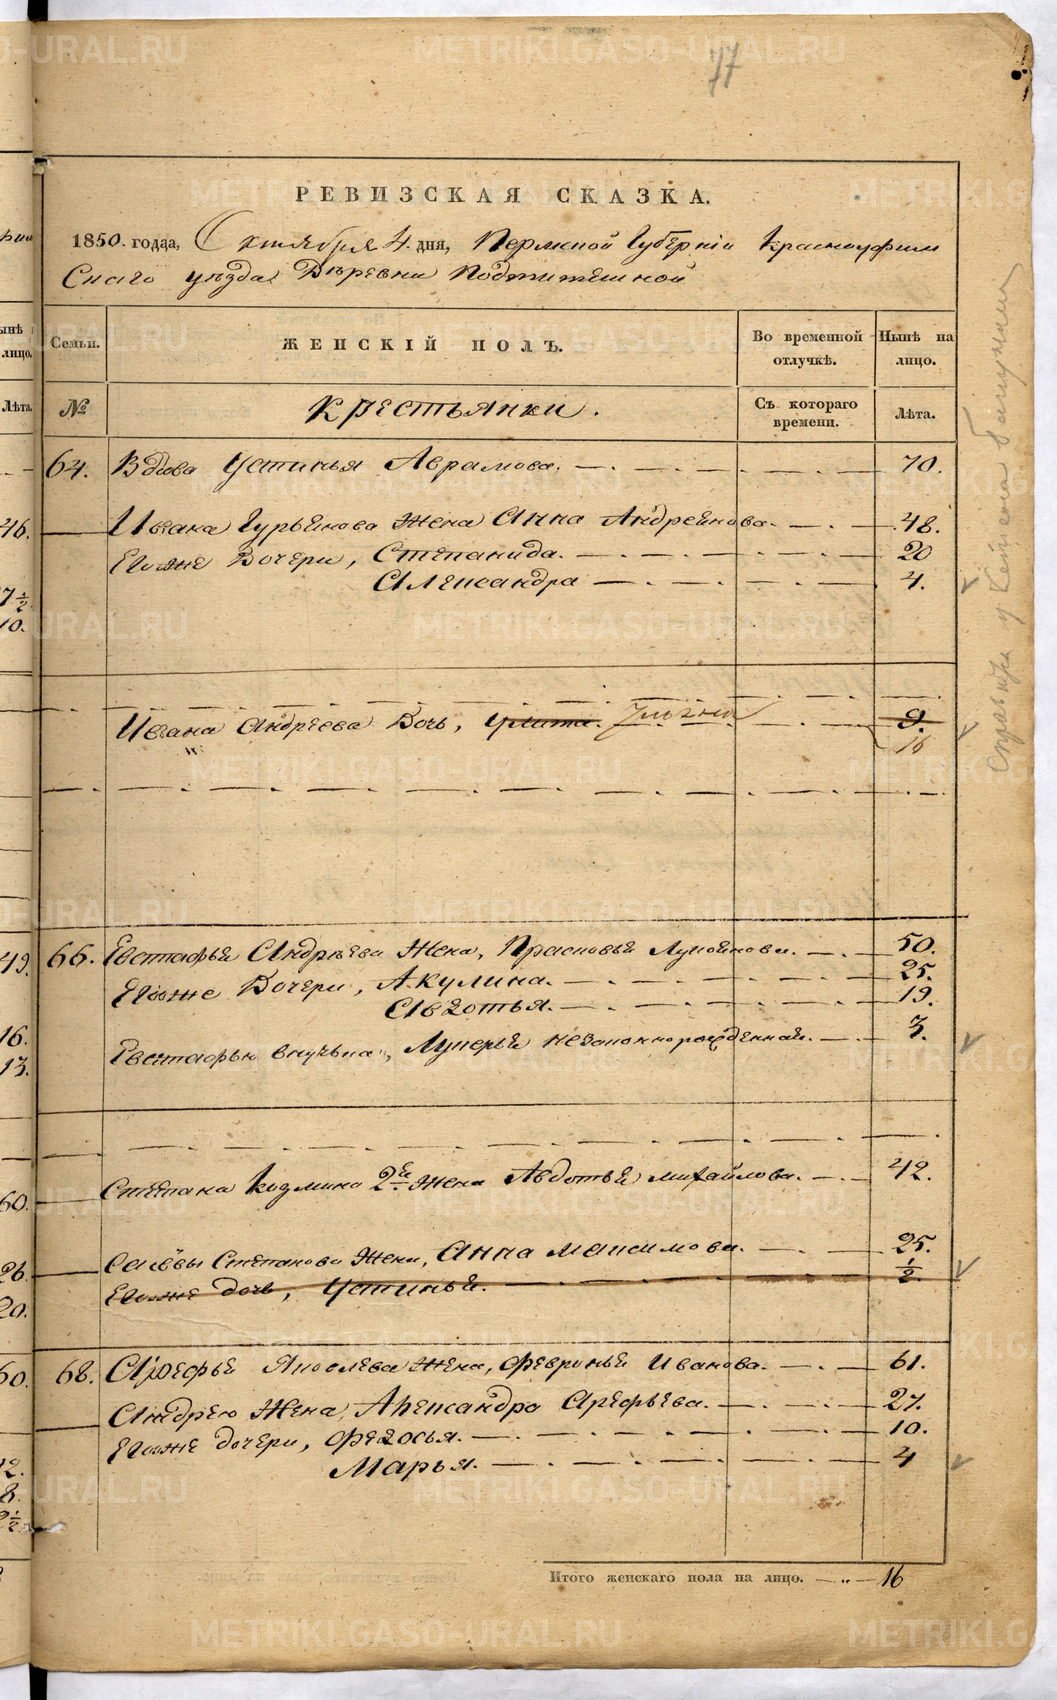 77
РЕВИЗСКАЯ СКАЗКА.
1850. года, Октября 4. дня, Пермской Губерніи Красноуфим
Скаго уѣзда Деревни
Семьи. ЖЕНСКІЙ ПОЛЪ. Во временной отлучкѣ. Нынѣ на лицо.
№ Крестьянки. Съ котораго времени. Лѣта.
64. Вдова Устинья Аврамова. 70.
Ивана Гурьянова Жена Анна Андреянова. 48.
Егоже Дочери, Степанида. 20
Александра 4.
Ивана Андреева Дочь, Улита. 9.
16
66. Евстафья Андрѣева Жена, Прасковья 50.
Егоже Дочери, Акулина. 25.
Авдотья. 19.
Евстафью внучька, Лукерья незаконнорожденная. 3.
Степана Козмина 2я Жена Авдотья михайлова. 42.
Саввы Степанова Жена, Анна максимова. 25.
Егоже дочь, Устинья. 1/2.
68. Арефья Яковлева Жена, Февронья Иванова. 61.
Андрею Жена, Александра Арефьева. 27.
Егоже дочери, Федосья. 10.
Марья. 4
Итого женскаго пола на лицо. 16
METRIKI.GASO-URAL.RU